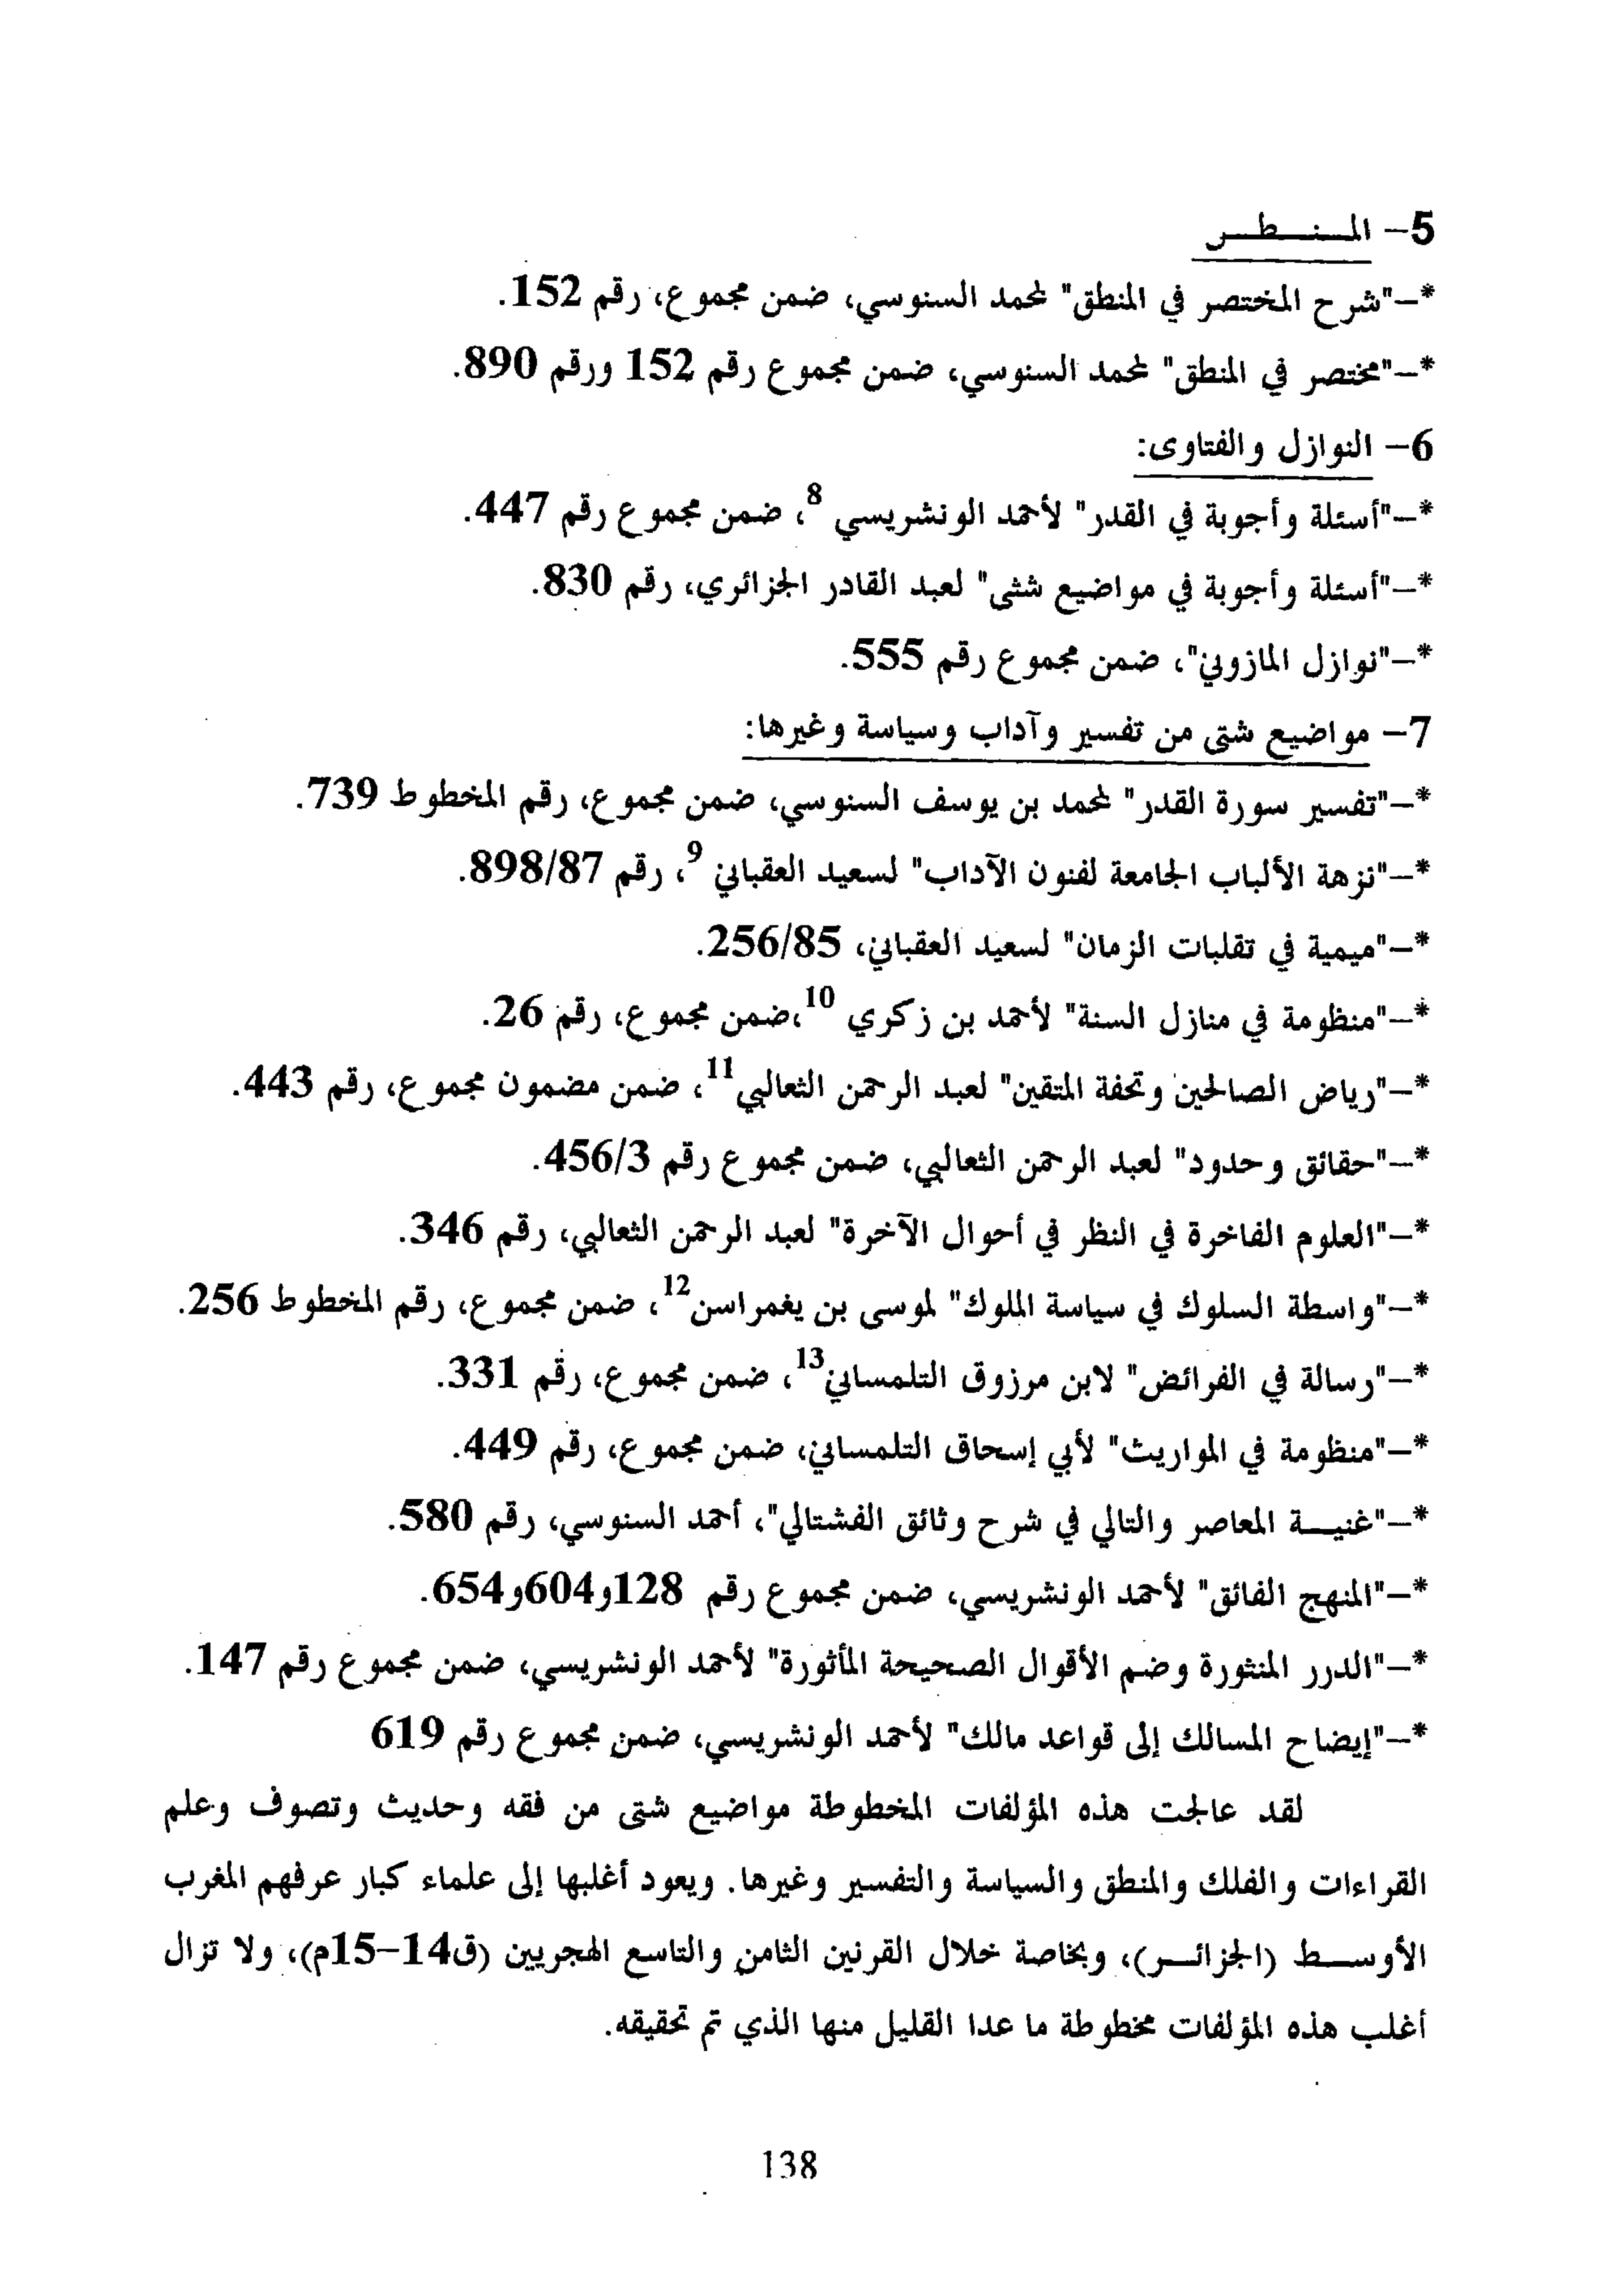 5- المـنـطـر
*-"شرح المختصر في المنطق" لمحمد السنوسي، ضمن مجموع، رقم 152.
*-"مختصر في المنطق" لمحمد السنوسي، ضمن مجموع رقم 152 ورقم 890.
6- النوازل والفتاوى:
*-"أسئلة وأجوبة في القدر" لأحمد الونشريسي 8، ضمن مجموع رقم 447.
*-"أسئلة وأجوبة في مواضيع شتى" لعبد القادر الجزائري، رقم 830.
*-"نوازل المازوني"، ضمن مجموع رقم 555.
7- مواضيع شتى من تفسير وآداب وسياسة وغيرها:
*-"تفسير سورة القدر" لمحمد بن يوسف السنوسي، ضمن مجموع، رقم المخطوط 739.
*-"نزهة الألباب الجامعة لفنون الآداب" لسعيد العقباني 9، رقم 898/87.
*-"ميمية في تقلبات الزمان" لسعيد العقباني، 256/85.
*-"منظومة في منازل السنة" لأحمد بن زكري 10،ضمن مجموع، رقم 26.
*-"رياض الصالحين وتحفة المتقين" لعبد الرحمن الثعالبي11، ضمن مضمون مجموع، رقم 443.
*-"حقائق وحدود" لعبد الرحمن الثعالبي، ضمن مجموع رقم 456/3.
*-"العلوم الفاخرة في النظر في أحوال الآخرة" لعبد الرحمن الثعالبي، رقم 346.
*-"واسطة السلوك في سياسة الملوك" لموسى بن يغمراسن12، ضمن مجموع، رقم المخطوط 256.
*-"رسالة في الفرائض" لابن مرزوق التلمساني13، ضمن مجموع، رقم 331.
*-"منظومة في المواريث" لأبي إسحاق التلمساني، ضمن مجموع، رقم 449.
*-"غنيـة المعاصر والتالي في شرح وثائق الفشتالي"، أحمد السنوسي، رقم 580.
*-"المنهج الفائق" لأحمد الونشريسي، ضمن مجموع رقم 128و604و654.
*-"الدرر المنثورة وضم الأقوال الصحيحة المأثورة" لأحمد الونشريسي، ضمن مجموع رقم 147.
*-"إيضاح المسالك إلى قواعد مالك" لأحمد الونشريسي، ضمن مجموع رقم 619
لقد عالجت هذه المؤلفات المخطوطة مواضيع شتى من فقه وحديث وتصوف وعلم
القراءات والفلك والمنطق والسياسة والتفسير وغيرها. ويعود أغلبها إلى علماء كبار عرفهم المغرب
الأوسـط (الجزائـر)، وبخاصة خلال القرنين الثامن والتاسع الهجريين (ق14-15م)، ولا تزال
أغلب هذه المؤلفات مخطوطة ما عدا القليل منها الذي تم تحقيقه.
138